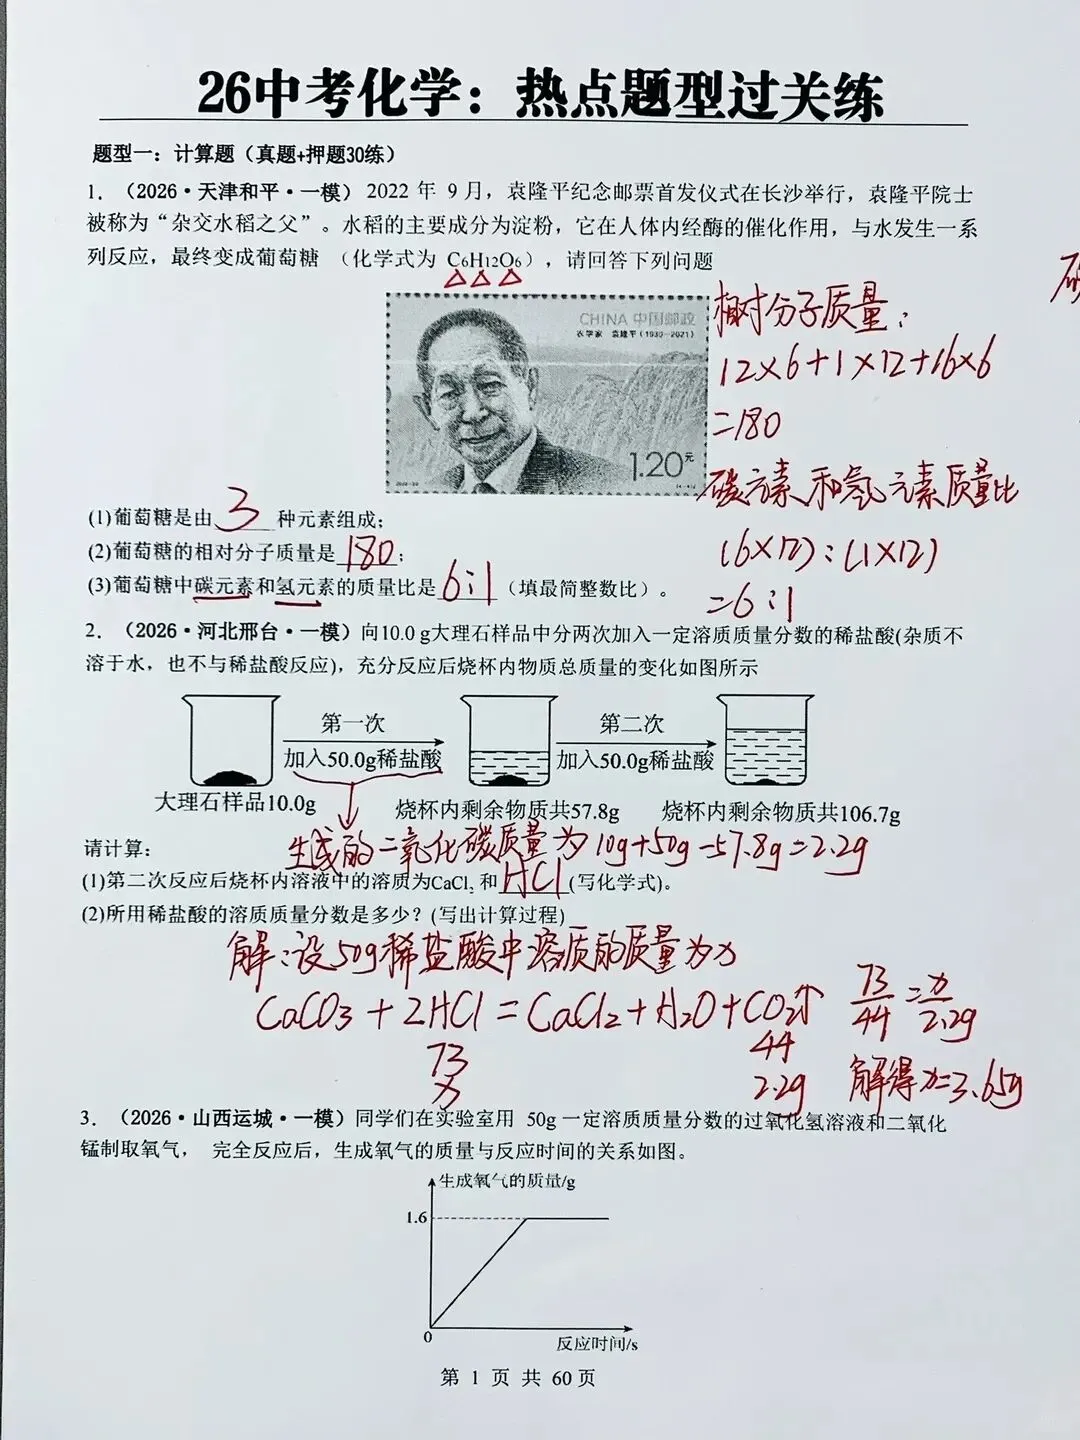 26中考化学：热点题型过关练
题型一：计算题（真题+押题30练）
1．（2026·天津和平·一模）2022 年 9 月，袁隆平纪念邮票首发仪式在长沙举行，袁隆平院士
被称为“杂交水稻之父”。水稻的主要成分为淀粉，它在人体内经酶的催化作用，与水发生一系
列反应，最终变成葡萄糖 （化学式为 C6H12O6），请回答下列问题
CHINA 中国邮政
农学家 袁隆平（1930—2021）
1.20元
相对分子质量：
12×6+1×12+16×6
=180
碳元素和氢元素质量比
(6×12):(1×12)
=6:1
(1)葡萄糖是由 3 种元素组成；
(2)葡萄糖的相对分子质量是 180；
(3)葡萄糖中碳元素和氢元素的质量比是 6:1（填最简整数比）。
2．（2026·河北邢台·一模）向10.0 g大理石样品中分两次加入一定溶质质量分数的稀盐酸(杂质不
溶于水，也不与稀盐酸反应)，充分反应后烧杯内物质总质量的变化如图所示
第一次
加入50.0g稀盐酸
第二次
加入50.0g稀盐酸
大理石样品10.0g
烧杯内剩余物质共57.8g
烧杯内剩余物质共106.7g
生成的二氧化碳质量为10g+50g-57.8g=2.2g
请计算：
(1)第二次反应后烧杯内溶液中的溶质为CaCl₂ 和 HCl (写化学式)。
(2)所用稀盐酸的溶质质量分数是多少？(写出计算过程)
解：设50g稀盐酸中溶质的质量为x
CaCO3+2HCl=CaCl2+H2O+CO2↑
73 44
x 2.2g
73/44=x/2.2g
解得x=3.65g
3．（2026·山西运城·一模）同学们在实验室用 50g 一定溶质质量分数的过氧化氢溶液和二氧化
锰制取氧气， 完全反应后，生成氧气的质量与反应时间的关系如图。
生成氧气的质量/g
1.6
0
反应时间/s
第 1 页 共 60 页